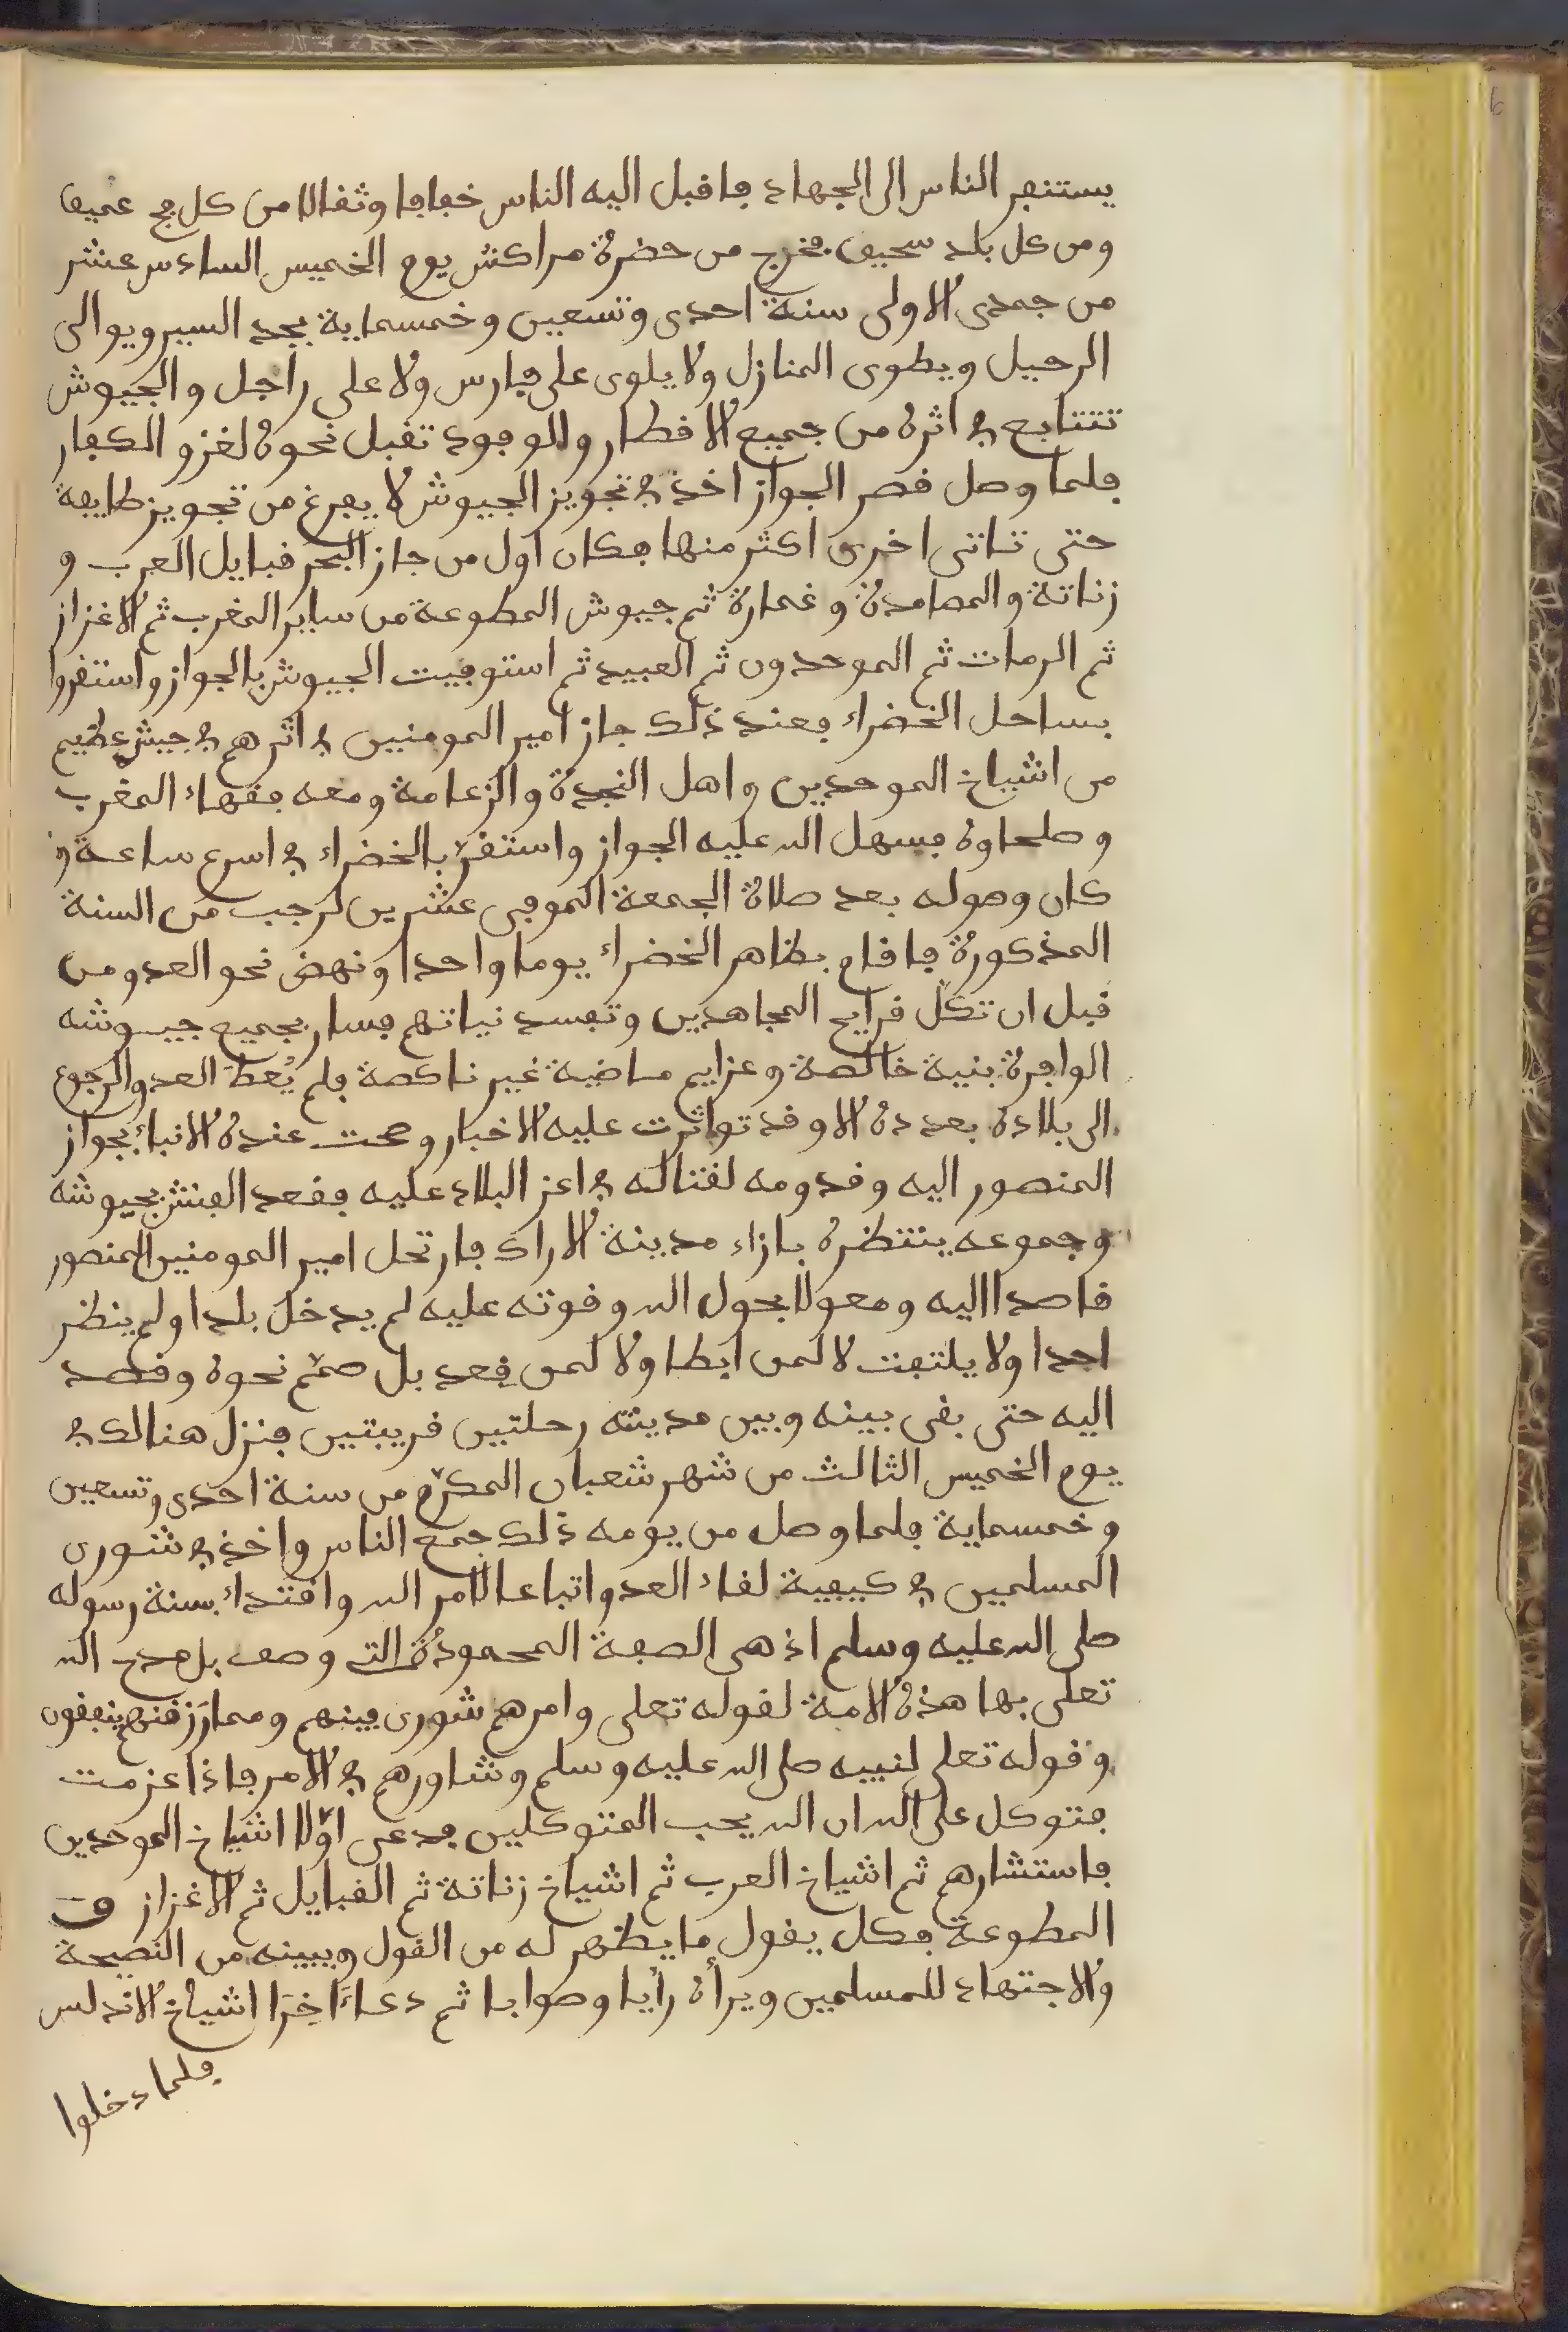 يستنفر الناس الى الجهاد فاقبل اليه الناس خفافا وثقالا من كل فج عميق
ومن كل بلد سحيق فخرج من حضرة مراكش يوم الخميس السادس عشر
من جمدى الاولى سنة احدى وتسعين وخمسماية يجد السير ويوالى
الرحيل ويطوى المنازل ولا يلوى على فارس ولا على راجل والجيوش
تتتابع في اثره من جميع الاقطار والوفود تقبل نحوه لغزو الكفار
فلما وصل قصر الجواز اخذ في تجويز الجيوش لا يفرغ من تجويز طايفة
حتى تاتى اخرى اكثر منها فكان اول من جاز البحر قبايل العرب و
زناتة والمصامدة وغمارة ثم جيوش المطوعة من ساير المغرب ثم الاغزاز
ثم الرمات ثم الموحدون ثم العبيد ثم استوفيت الجيوش بالجواز واستقروا
بساحل الخضراء فعند ذلك جاز امير المومنين في اثرهم في جيش عظيم
من اشياخ الموحدين واهل النجدة والزعامة ومعه فقهاء المغرب
وصلحاوه فسهل الله عليه الجواز واستقرّ بالخضراء في اسرع ساعة و
كان وصوله بعد صلاة الجمعة الموفى عشرين لرجب من السنة
المذكورة فاقام بظاهر الخضراء يوما واحدا ونهض نحو العدو من
قبل ان تكلّ قرايح المجاهدين وتفسد نياتهم فسار بجميع جيوشه
الوافرة بنية خالصة وعزايم ماضية غير ناكصة فلم يُعط العدو الرجوع
الى بلاده بعدده الا وقد تواترت عليه الاخبار وصحت عنده الانباء بجواز
المنصور اليه وقدومه لقتاله في اعز البلاد عليه فقعد الفنش بجيوشه
وجموعه ينتظره بازاء مدينة الاراك فارتحل امير المومنين المنصور
قاصدا اليه ومعولا بحول الله وقوته عليه لم يدخل بلدا ولم ينظر
احدا ولا يلتفت لا لمن ابطا ولا لمن قعد بل صمّم نحوه وقصد
اليه حتى بقى بينه وبين مدينته رحلتين قريبتين فنزل هنالك في
يوم الخميس الثالث من شهر شعبان المكرّم من سنة احدى وتسعين
وخمسماية فلما وصل من يومه ذلك جمع الناس واخذ في شورى
المسلمين في كيفية لقاء العدو اتباعا لامر الله واقتداء بسنة رسوله
صلى الله عليه وسلم اذ هى الصفة المحمودة التي وصف بل مدح الله
تعلى بها هذه الامة لقوله تعلى وامرهم شورى بينهم ومما رَزقنهم ينفقون
وقوله تعلى لنبيه صلى الله عليه وسلم وشاورهم في الامر فاذا عزمت
فتوكل على الله ان الله يحب المتوكلين فدعى اوّلا اشياخ الموحدين
فاستشارهم ثم اشياخ العرب ثم اشياخ زناتة ثم القبايل ثم الاغزاز و
المطوعة فكل يقول ما يظهر له من القول ويبينه من النصيحة
والاجتهاد للمسلمين ويرأه رأيا وصوابا ثم دعاءَاخِرَا اشياخ الاندلس
فلما دخلوا